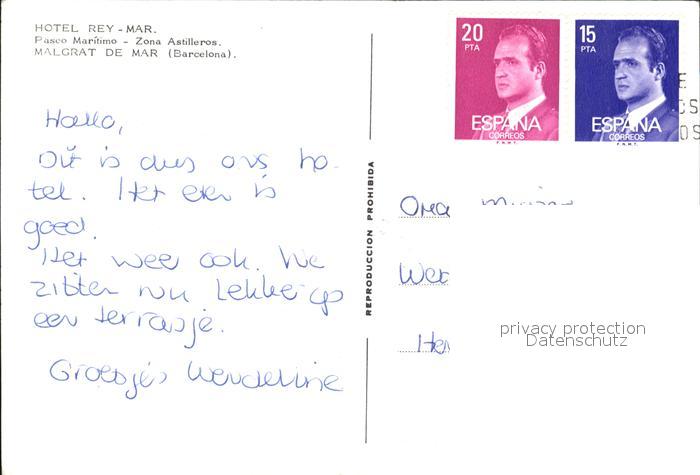 HOTEL REY - MAR.
Paseo Marítimo - Zona Astilleros.
MALGRAT DE MAR (Barcelona).
Hallo,
Dit is dus ons ho-
tel. Het eten is
goed.
Het weer ook. We
zitten nu lekker op
een terrasje.
Groetjes Wendeline
REPRODUCCION PROHIBIDA
20
PTA
ESPAÑA
CORREOS
F.N.M.T.
15
PTA
ESPAÑA
CORREOS
F.N.M.T.
Oma
privacy protection
Datenschutz